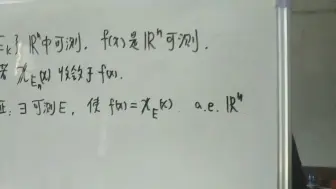 E_k} ℝⁿ中可测, f(x)是ℝⁿ可测.
若 χ_{E_n}(x) 收敛于 f(x).
证: ∃可测E, 使 f(x) = χ_E(x). a.e. ℝⁿ